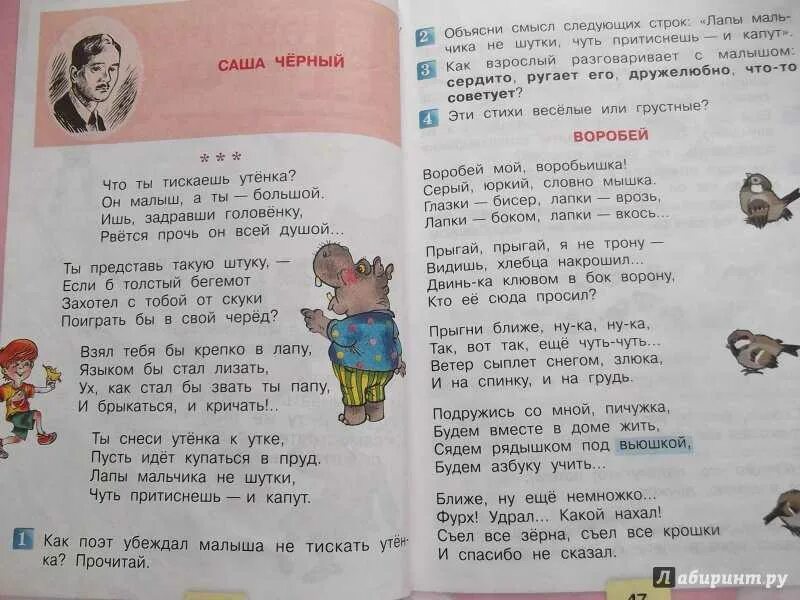 САША ЧЁРНЫЙ
* * *
Что ты тискаешь утёнка?
Он малыш, а ты — большой.
Ишь, задравши головёнку,
Рвётся прочь он всей душой...
Ты представь такую штуку, —
Если б толстый бегемот
Захотел с тобой от скуки
Поиграть бы в свой черёд?
Взял тебя бы крепко в лапу,
Языком бы стал лизать,
Ух, как стал бы звать ты папу,
И брыкаться, и кричать!..
Ты снеси утёнка к утке,
Пусть идёт купаться в пруд.
Лапы мальчика не шутки,
Чуть притиснешь — и капут.
1 Как поэт убеждал малыша не тискать утён-
ка? Прочитай.
2 Объясни смысл следующих строк: «Лапы маль-
чика не шутки, чуть притиснешь — и капут».
3 Как взрослый разговаривает с малышом:
сердито, ругает его, дружелюбно, что-то
советует?
4 Эти стихи весёлые или грустные?
ВОРОБЕЙ
Воробей мой, воробьишка!
Серый, юркий, словно мышка.
Глазки — бисер, лапки — врозь,
Лапки — боком, лапки — вкось...
Прыгай, прыгай, я не трону —
Видишь, хлебца накрошил...
Двинь-ка клювом в бок ворону,
Кто её сюда просил?
Прыгни ближе, ну-ка, ну-ка,
Так, вот так, ещё чуть-чуть...
Ветер сыплет снегом, злюка,
И на спинку, и на грудь.
Подружись со мной, пичужка,
Будем вместе в доме жить,
Сядем рядышком под вьюшкой,
Будем азбуку учить...
Ближе, ну ещё немножко...
Фурх! Удрал... Какой нахал!
Съел все зёрна, съел все крошки
И спасибо не сказал.
47
Лабиринт.ру